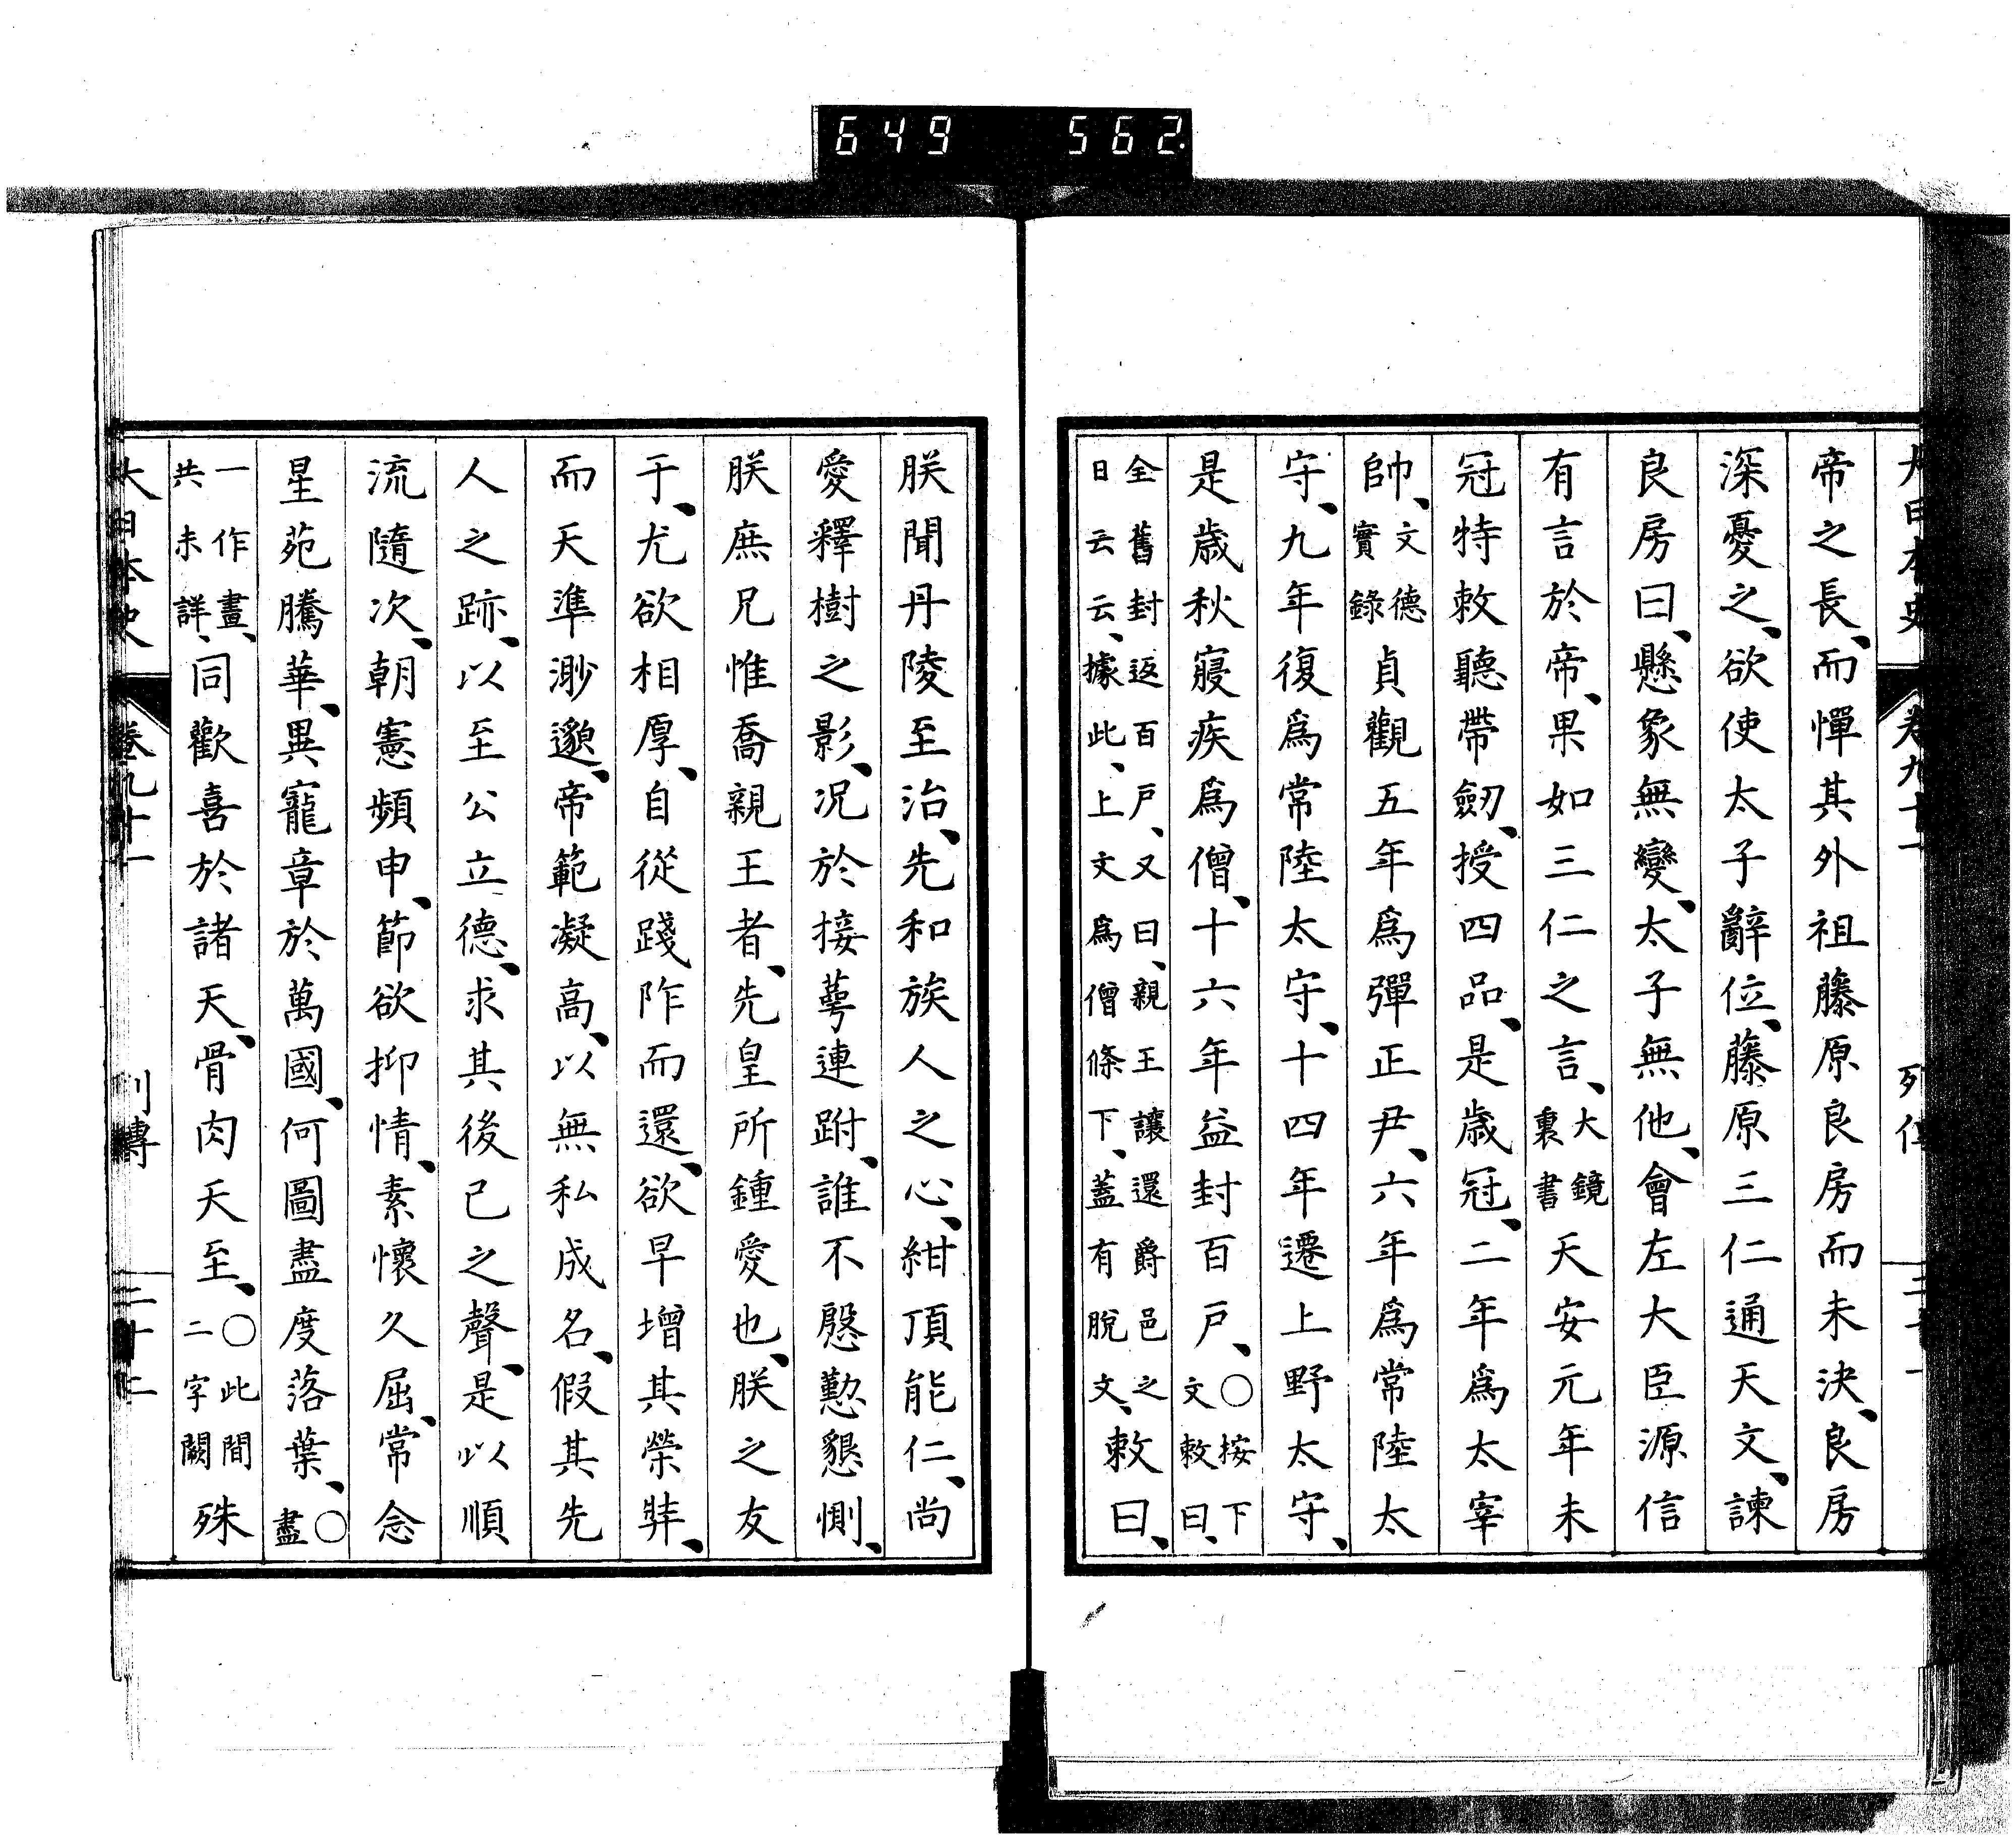 649 562.
大日本史 卷九十一 列傳
帝之長、而憚其外祖藤原良房而未決、良房
深憂之、欲使太子辭位、藤原三仁通天文、諫
良房曰、懸象無變、太子無他、會左大臣源信
有言於帝、果如三仁之言、大鏡裏書天安元年未
冠特敕聽帶劒、授四品、是歲冠、二年爲太宰
帥、文德實錄貞觀五年爲彈正尹、六年爲常陸太
守、九年復爲常陸太守、十四年遷上野太守、
是歲秋寢疾爲僧、十六年益封百戸、○桉下文敕曰、
全舊封返百戸、又曰、親王讓還爵邑之日云云、據此、上文爲僧條下、蓋有脫文、敕曰、
朕聞丹陵至治、先和族人之心、紺頂能仁、尚
愛釋樹之影、況於接萼連跗、誰不慇懃懇惻、
朕庶兄惟喬親王者、先皇所鍾愛也、朕之友
于、尤欲相厚、自從踐阼而還、欲早增其榮莾、
而天準渺邈、帝範凝高、以無私成名、假其先
人之跡、以至公立德、求其後己之聲、是以順
流隨次、朝憲頻申、節欲抑情、素懷久屈、常念
星苑騰華、異寵章於萬國、何圖盡度落葉、○盡
一作晝、共未詳、同歡喜於諸天、骨肉天至、○此間二字闕殊
大日本史 卷九十一 列傳 二十二